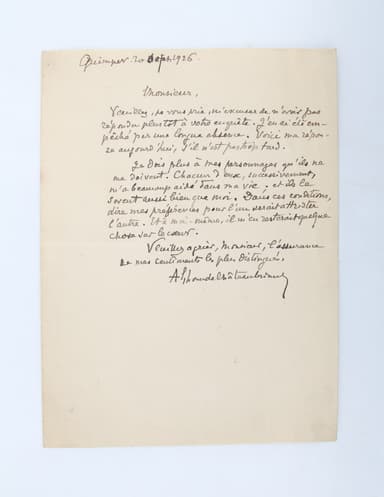 Quimper 20 Sept 1926
Monsieur,
Veuillez, je vous prie, m'excuser de n'avoir pas
répondu plus tôt à votre enquête. J'en ai été em-
pêché par une longue absence. Voici ma répon-
se aujourd'hui, s'il n'est pas trop tard.
Je dois plus à mes personnages qu'ils ne
me doivent. Chacun d'eux, successivement,
m'a beaucoup aidé dans ma vie. et ils le
savent aussi bien que moi. Dans ces conditions,
dire mes préférences pour l'un serait attrister
l'autre. Et à moi-même, il m'en resterait quelque
chose sur le cœur.
Veuillez agréer, Monsieur, l'assurance
de mes sentiments les plus distingués,
Alphonse de Châteaubriant